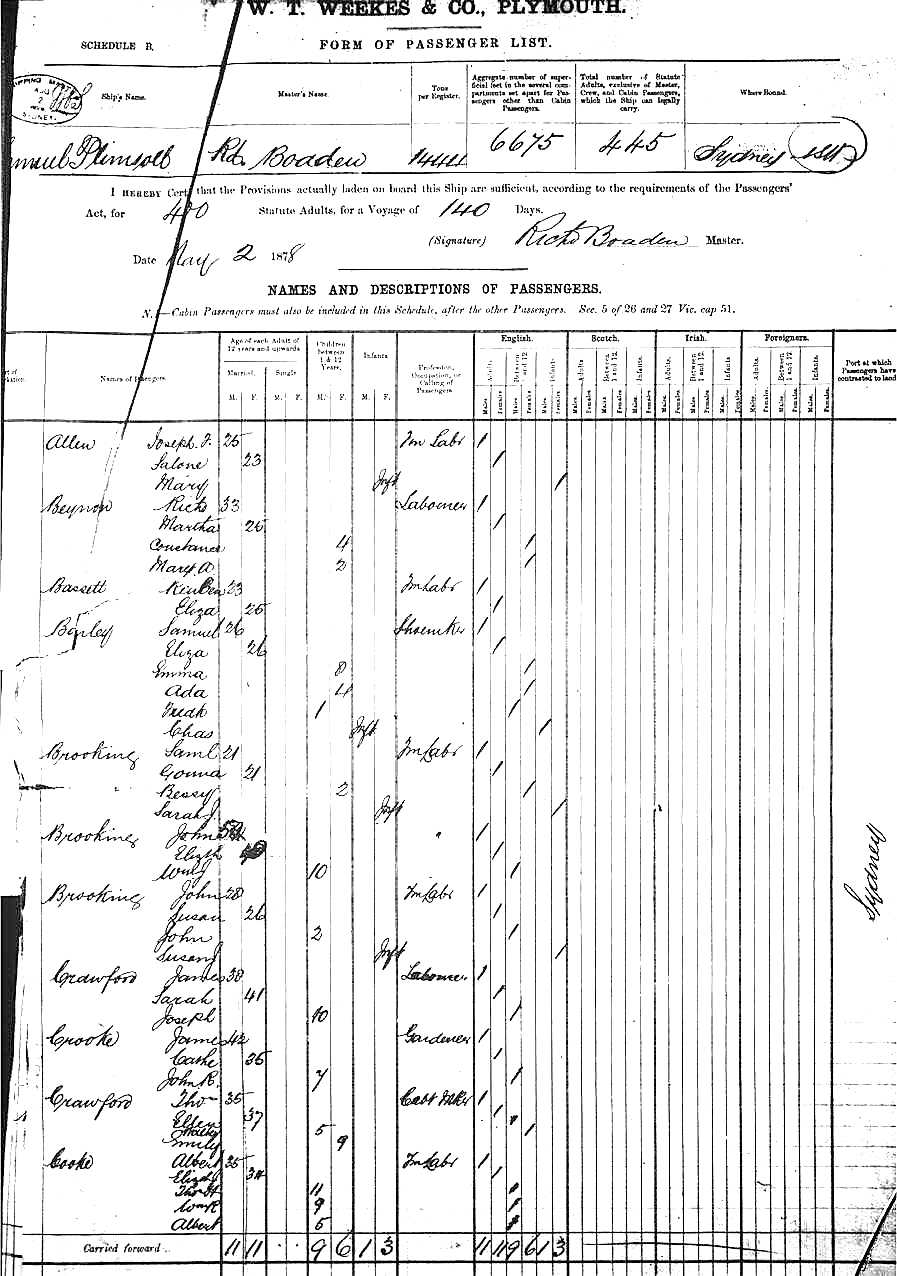 W. T. WEEKES & CO., PLYMOUTH.
SCHEDULE B.
FORM OF PASSENGER LIST.
Ship's Name. Master's Name. Tons per Register. Aggregate number of superficial feet in the several compartments set apart for Passengers other than Cabin Passengers. Total number of Statute Adults, exclusive of Master, Crew, and Cabin Passengers, which the Ship can legally carry. Where Bound.
Plimsoll Rd. Boaden 1444 6675 445 Sydney NSW
I HEREBY Cert that the Provisions actually laden on board this Ship are sufficient, according to the requirements of the Passengers'
Act, for Statute Adults, for a Voyage of 140 Days.
(Signature) Richd Boaden Master.
Date May 2 1878
NAMES AND DESCRIPTIONS OF PASSENGERS.
N. —Cabin Passengers must also be included in this Schedule, after the other Passengers. Sec. 5 of 26 and 27 Vic. cap 51.
Names of Passengers. Age of each Adult of 12 years and upwards Children between 1 & 12 Years. Infants Profession, Occupation, or Calling of Passengers English. Scotch. Irish. Foreigners. Port at which Passengers have contracted to land
Married. Single Adults Between 1 and 12 Infants Adults Between 1 and 12 Infants Adults. Between 1 and 12 Infants Adults. Between 1 and 12 Infants.
M. F. M. F. M. F. M. F. Males Females Males Females Males Females Males Females Males Females Males Females Males Females Males Females Males Females Males Females Males Females Males Females
Allen Joseph F. 25 Fm Labr 1
Salone 23 1
Mary Inft 1
Beynon Richd 33 Labourer 1
Martha 25 1
Constance 4 1
Mary A 2 1
Bassett Reuben 23 Fm Labr 1
Eliza 25 1
Samuel 26 Shoemker 1
Eliza 26 1
Emma 8 1
Ada 4 1
Fredk 1 1
Chas Inft 1
Brooking Saml 21 Fm Labr 1
21 1
Bessy 2 1
Sarah J. Inft 1
Brooking John " 1
Elizth 1
10 1
Brooking John 28 Fm Labr 1
Susan 26 1
John 2 1
Susan J Inft 1
Crawford James 38 Labourer 1
Sarah 41 1
Joseph 10 1
Crooke James 42 Gardener 1
Cathe 36 1
John R. 7 1
Crawford Tho 35 Cabt Mkr 1
Ellen 37 1
5 1
Emily 9 1
Cooke Albert 35 Fm Labr 1
Elizth 34 1
Thos H 11 1
Wm R 9 1
Albert 5 1
Sydney
Carried forward .. 11 11 9 6 1 3 11 11 9 6 1 3